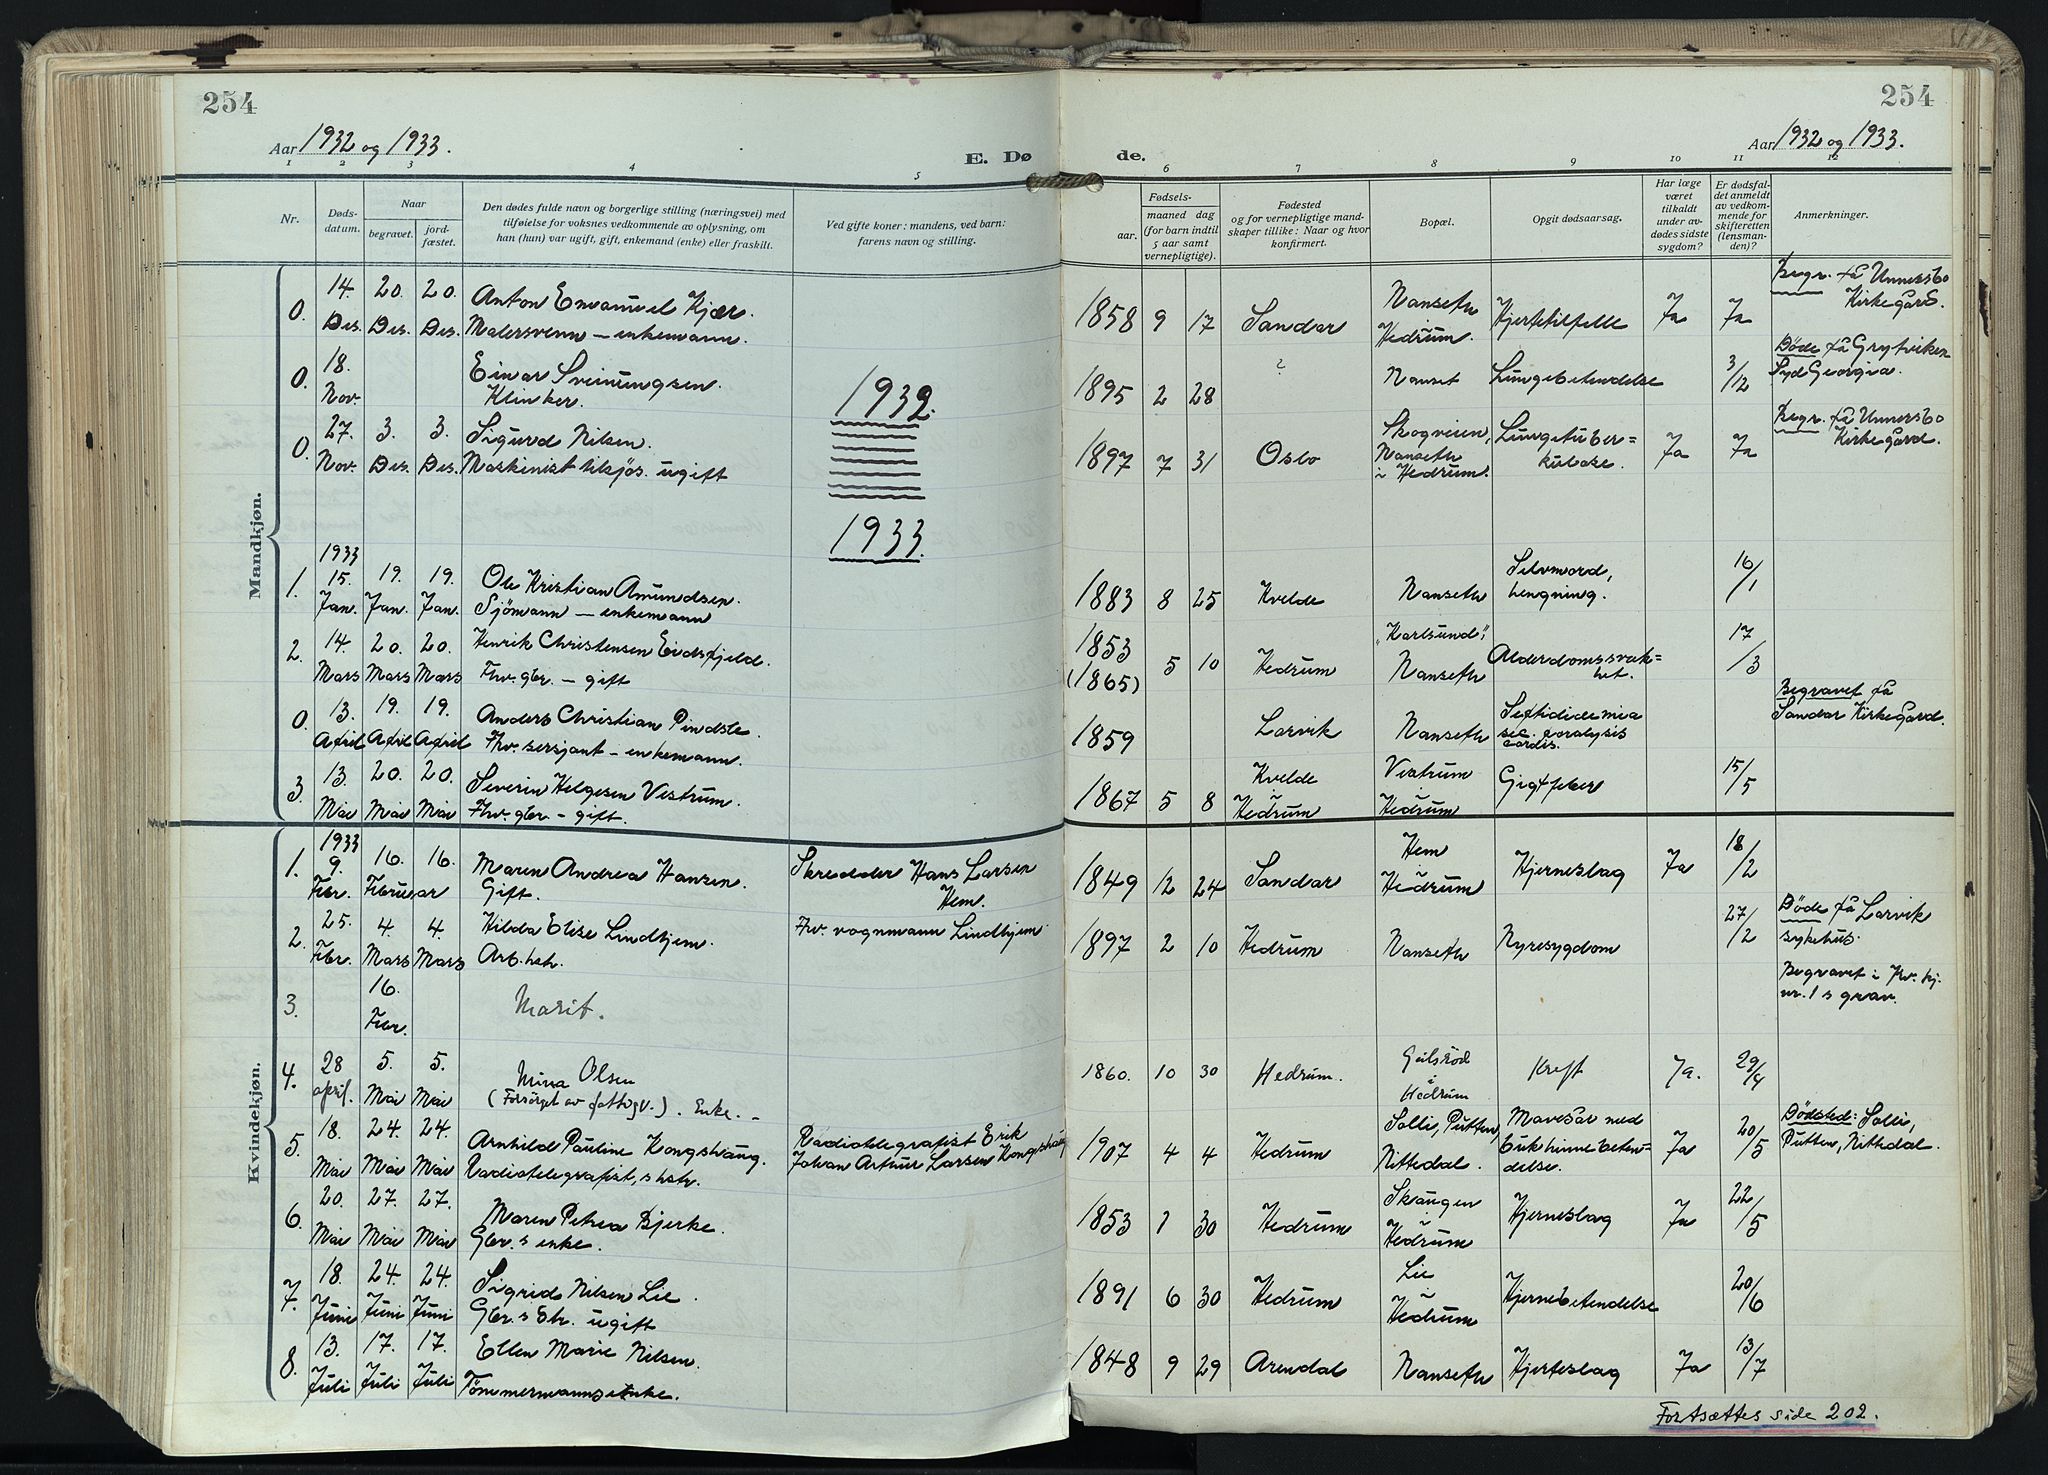 254
254
Aar 1932 og 1933.
E. Dø de.
Aar 1932 og 1933.
1 2 3 4 5 6 7 8 9 10 11 12
Nr.
Døds-
datum.
Naar
begravet.
jord-
fæstet.
Den dødes fulde navn og borgerlige stilling (næringsvei) med
tilføielse for voksnes vedkommende av oplysning, om
han (hun) var ugift, gift, enkemand (enke) eller fraskilt.
Ved gifte koner: mandens, ved barn:
farens navn og stilling.
Fødsels-
aar.
maaned dag
(for barn indtil
5 aar samt
vernepligtige).
Fødested
og for vernepligtige mand-
skaper tillike: Naar og hvor
konfirmert.
Bopæl.
Opgit dødsaarsag.
Har læge
været
tilkaldt
under av-
dødes sidste
sygdom?
Er dødsfal-
det anmeldt
av vedkom-
mende for
skifteretten
(lensman-
den)?
Anmerkninger.
Mandkjøn.
0. 14. 20. 20. Anton Emanuel Kjær. 1858 9 17 Sandar Nanseth Hjertetilfelle Ja Ja Begr. på Unnersbo
Des. Des. Des. Malersvenn – enkemann. Hedrum. Kirkegård.
0. 18. Einar Sveinungsen 1895 2 28 ? Nanset Lungebetendelse 3/12 Døde på Grytviken
Nov. Klinker. Syd Georgia.
1932.
0. 27. 3. 3. Sigurd Nilsen. 1897 7 31 Oslo Skogveien, Lungetuber= Ja Ja Begr. på Unnersbo
Nov. Des. Des. Maskinist tilsjøs. ugift Nanseth kulose. Kirkegård.
i Hedrum.
1933.
1933
1. 15. 19. 19. Ole Kristian Amundsen. 1883 8 25 Kvelde Nanseth Selvmord, 16/1
Jan. Jan. Jan. Sjömann – enkemann hengning.
2. 14. 20. 20. Henrik Christensen Eidsfjeld. 1853 5 10 Hedrum "Karlsund", Alderdomssvak= 17/3
Mars Mars Mars Fhv. gbr. – gift (1865) Nanseth het.
0. 13. 19. 19. Anders Christian Pindsle. 1859 Larvik Nanseth Begravet på
April April April Fhv. sersjant – enkemann. sec. paralysis Sandar Kirkegård.
cordis.
3. 13. 20. 20. Severin Helgesen Vestrum. 1867 5 8 Kvelde Vestrum Gigtfeber 15/5
Mai Mai Mai Fhv. gbr. – gift. i Hedrum i Hedrum
Kvindekjøn.
1933
1. 9. 16. 16. Maren Andrea Hansen. Skredder Hans Larsen 1849 12 24 Sandar Hem Hjerneslag Ja 18/2
Febr. Februar Gift. Hem. i Hedrum
2. 25. 4. 4. Hilda Elise Lindhjem. Fhv. vognmann Lindhjem 1897 2 10 Hedrum Nanseth Nyresygdom 27/2 Døde på Larvik
Febr. Mars Mars Arb.hstr. sykehus.
3. 16. Marit. Begravet i Kv. kj.
Febr. nr. 1 s grav.
4. 28 5. 5. Mina Olsen 1860. 10 30 Hedrum. Kreft Ja. 29/4
april. Mai Mai (Forsörget av fattigv.). Enke. – i Hedrum
5. 18. 24. 24. Arnhild Pauline Kongshaug. Radiotelegrafist Erik 1907 4 4 Hedrum Solli, Putten, Mavesår med Ja 20/5 Dødsted: Solli,
Mai Mai Mai Radiotelegrafist, s hstr. Johan Arthur Larsen Kongshaug Nittedal. bukhinnebeten= Putten, Nittedal.
delse.
6. 20. 27. 27. Maren Petrea Bjerke. 1853 1 30 Hedrum Skaugen Hjerneslag Ja 22/5
Mai Mai Mai Gbr. s enke. i Hedrum
7. 18. 24. 24. Sigrid Nilsen Lie. 1891 6 30 Hedrum Lie Hjernebetendelse 20/6
Juni Juni Juni Gbr. s dtr. ugift i Hedrum
8. 13. 17. 17. Ellen Marie Nilsen. 1848 9 29 Arendal Nanseth Hjerteslag Ja 13/7
Juli Juli Juli Tömmermannsenke.
Fortsættes side 202.